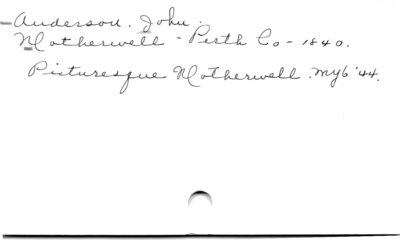 Anderson. John.
Motherwell - Perth Co - 1840.
Picturesque Motherwell. My6 '44.